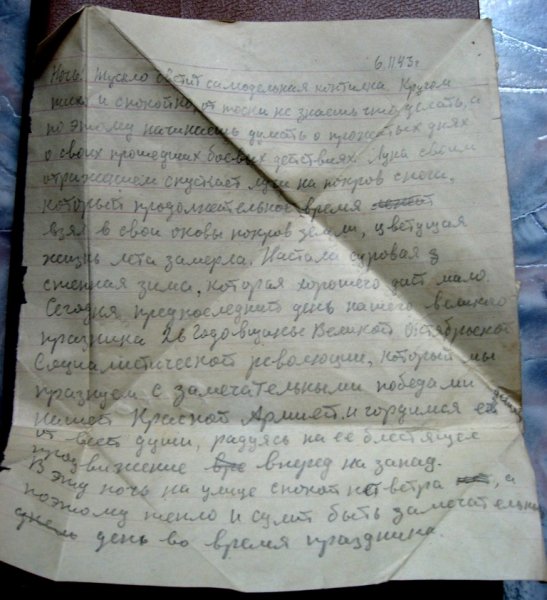 6.11.43 г
Ночь. Тускло светит самодельная коптилка. Кругом
тихо и спокойно, от тоски не знаешь что делать, а
по этому начинаешь думать о прожитых днях
о своих прошедших боевых действиях. Луна своим
отражением спускает лучи на покров снега,
который продолжительное время
взял в свои оковы покров земли, цветущая
жизнь лета замерла. Настала суровая
снежная зима, которая хорошего даёт мало
Сегодня предпоследний день нашего великого
празника 26 Годовщины Великой Октябрьской
Социалистической революции, который мы
празнуем с замечательными победами
нашей Красной Армией и гордимся ею
от всей души, радуясь на её блестящее
продвижение вперед на запад.
В эту ночь на улице спокой нет ветра, а
поэтому тепло и сулит быть замечательным
день во время праздника.